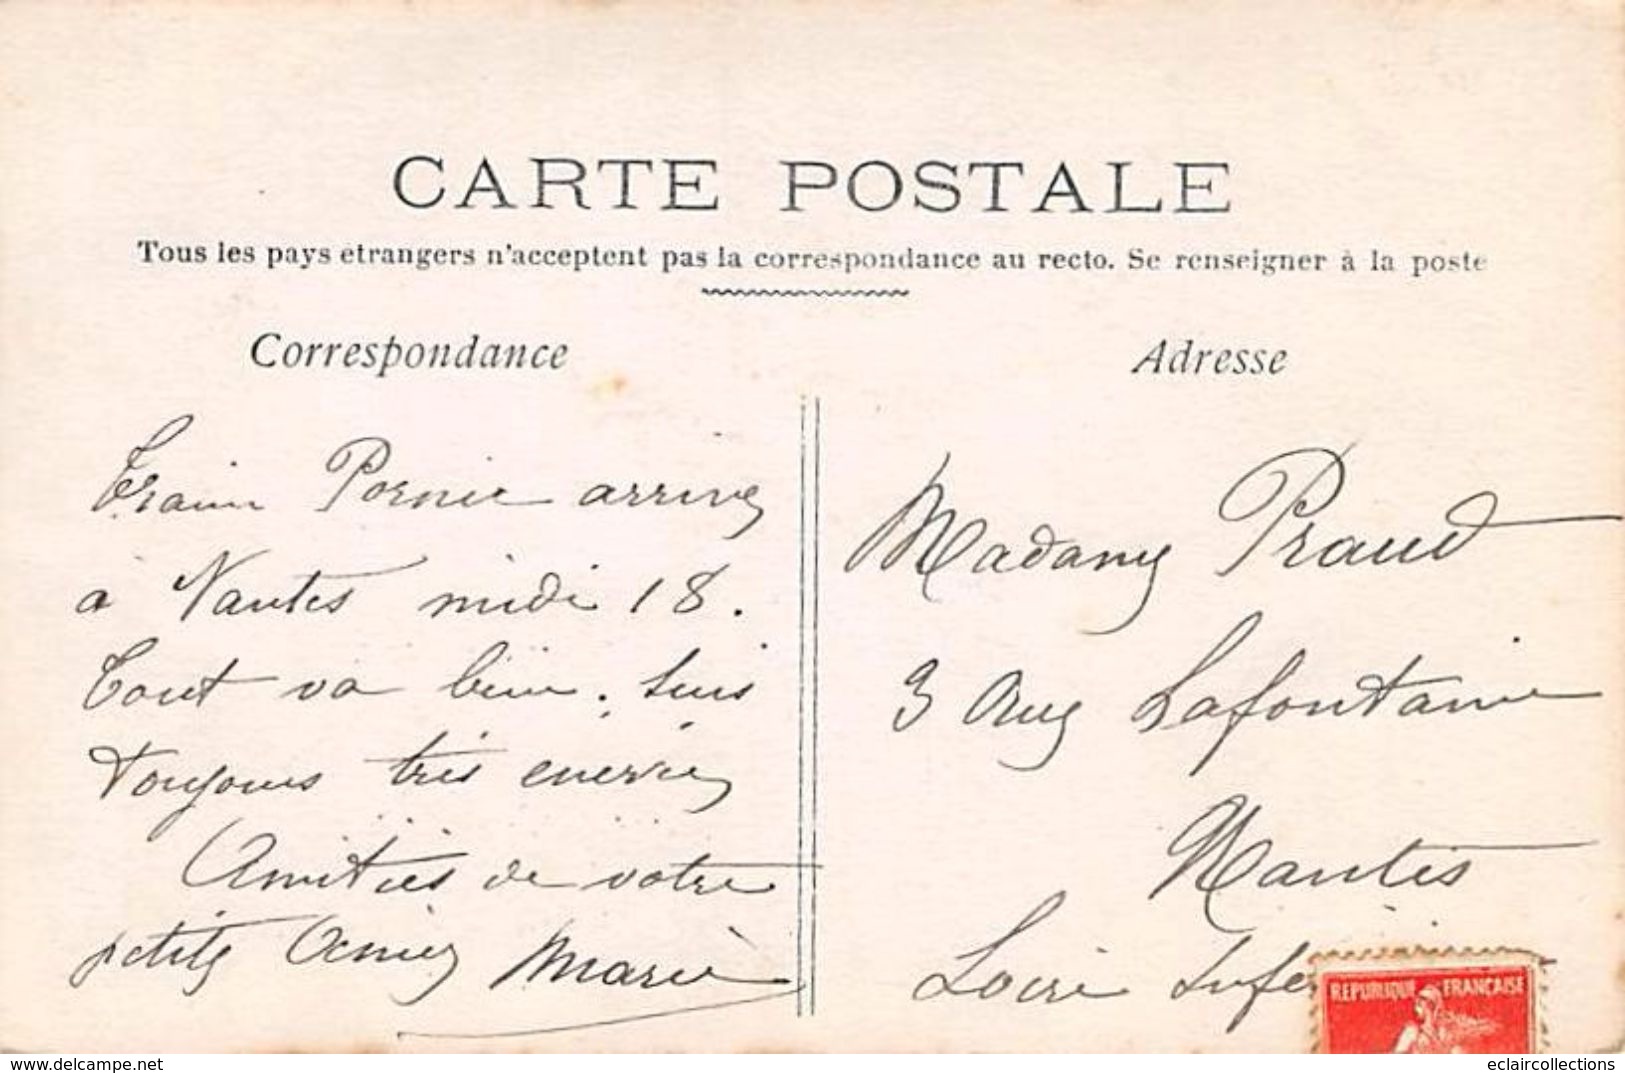 CARTE POSTALE
Tous les pays etrangers n'acceptent pas la correspondance au recto. Se renseigner à la poste
Correspondance
Train Pornic arrive
à Nantes midi 18.
Tout va bien. Suis
toujours très enervée
Amitiés de votre
petite Amie Marie
Adresse
Madame Praud
3 Rue Lafontaine
Nantes
Loire Infe
REPUBLIQUE FRANÇAISE
www.delcampe.net
eclaircollections